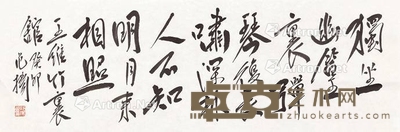 獨坐
幽篁
裏彈
琴復長
嘯深林
人不知
明月来
相照
王維竹裏
館 癸卯